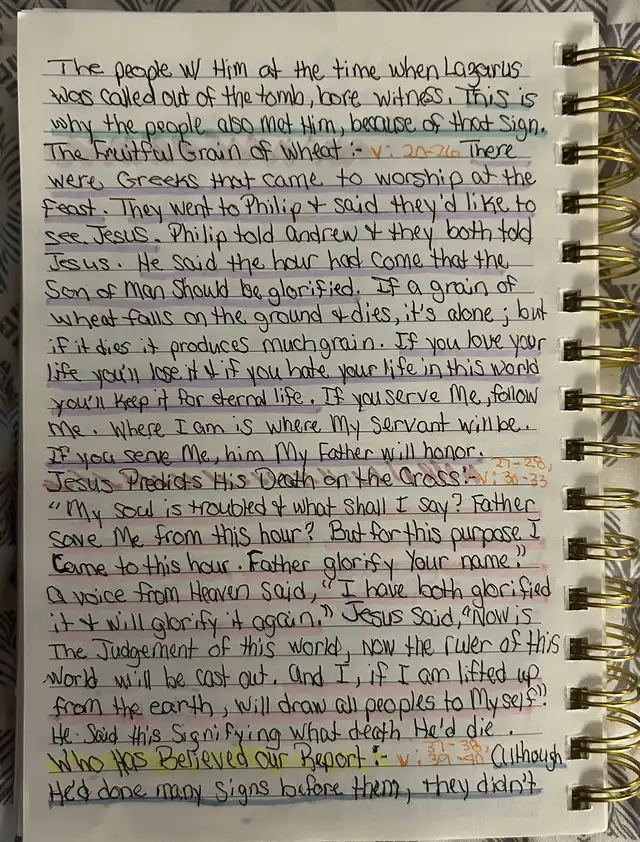 The people w/ Him at the time when Lazarus
was called out of the tomb, bore witness. This is
why the people also met Him, because of that sign.
The Fruitful Grain of Wheat :- v: 20-26 There
were Greeks that came to worship at the
feast. They went to Philip & said they'd like to
see Jesus. Philip told Andrew & they both told
Jesus. He said the hour had come that the
Son of Man should be glorified. If a grain of
wheat falls on the ground & dies, it's alone; but
if it dies it produces much grain. If you love your
life you'll lose it & if you hate your life in this world
you'll keep it for eternal life. If you serve Me, follow
Me. Where I am is where My servant will be.
If you serve Me, him My Father will honor.
Jesus Predicts His Death on the Cross:- v: 27-28, 30-33
"My soul is troubled & what shall I say? Father
save Me from this hour? But for this purpose I
came to this hour. Father glorify Your name."
A voice from Heaven said, "I have both glorified
it & will glorify it again." Jesus said, "Now is
The Judgement of this world, now the ruler of this
world will be cast out. And I, if I am lifted up
from the earth, will draw all peoples to Myself".
He said this signifying what death He'd die.
Who Has Believed Our Report :- v: 37-38, 39-40 (Although
He'd done many signs before them, they didn't